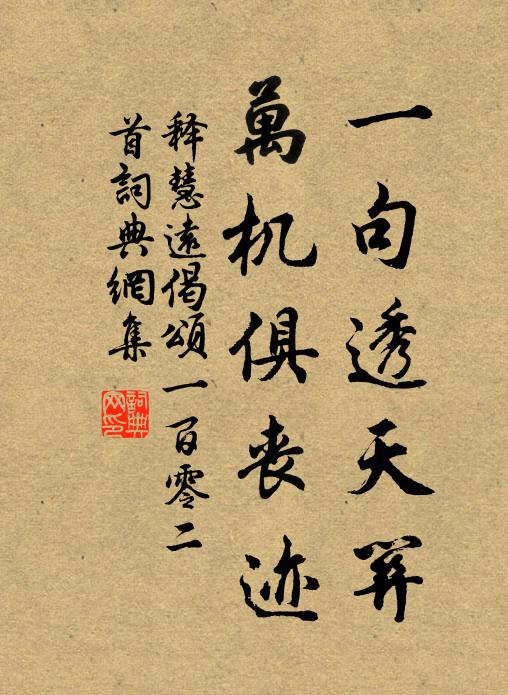 一句透天關
萬机俱丧迹
释慧遠偈頌一百零二
首詞典網集
詞典网印